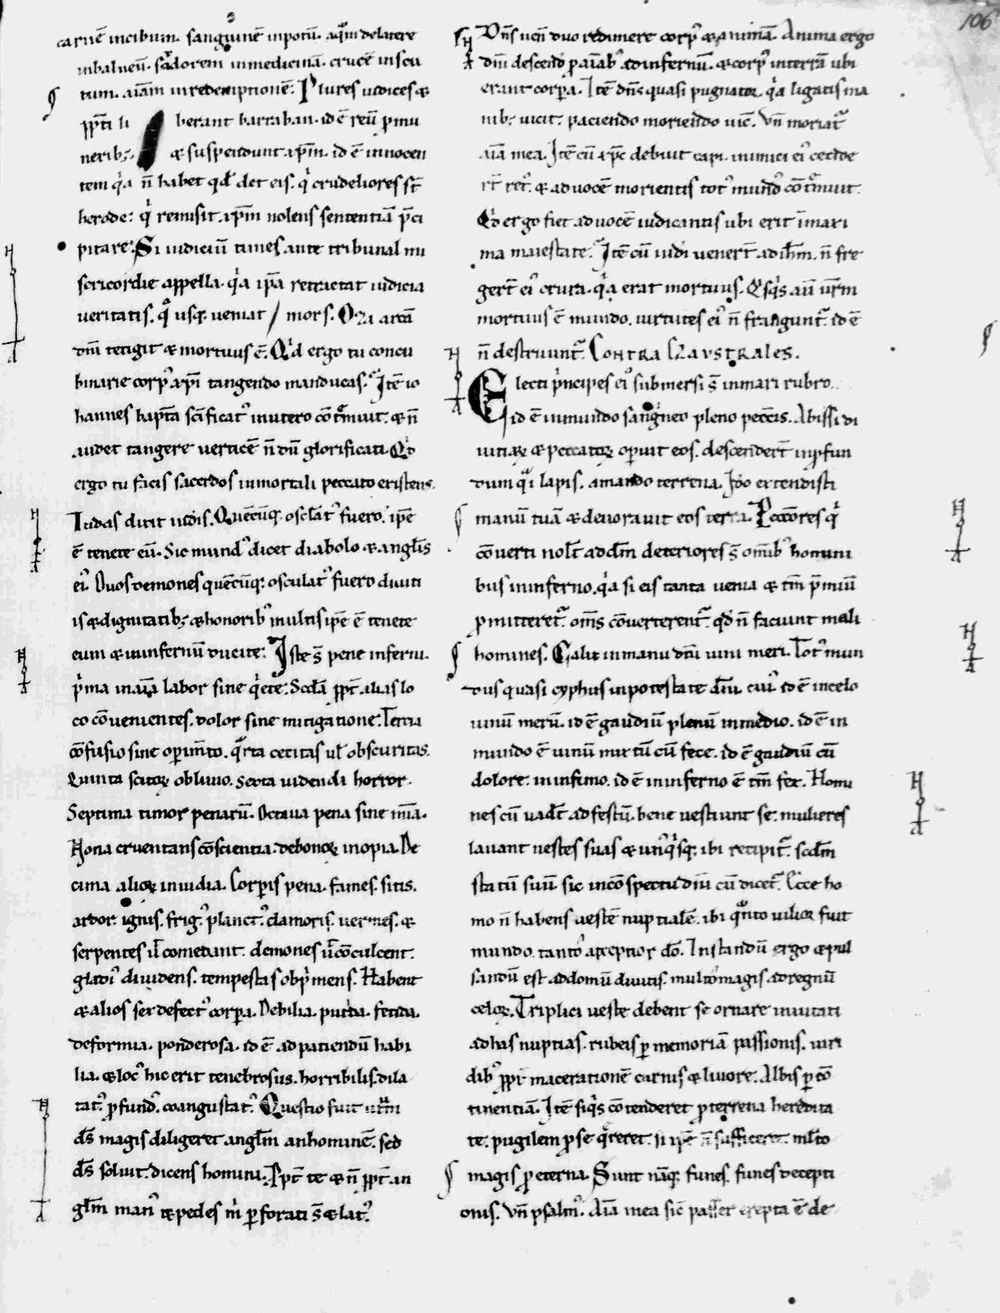 106
carnē incibum. sanguinē inpotū. aquā delatere
inbalneū. sudorem inmedicinā. crucē inscu
tum. aīam inredemptionē. Plures iudices &
pp̄ti li berant barraban. id ē reū pmu
nerib; & suspendunt xp̄m. id ē innocen
tem qͥa n̄ habet qd̄ det eis. qͥ crudeliores st̄
herode. qͥ remisit xp̄m nolens sententiā p̄ci
pitare. Si iudiciū times ante tribunal mi
sericordie appella. qͥa ip̄a retractat iudicia
ueritatis. usq; ueniat mors. Oza arcā
dn̄i tetigit & mortuus ē. Qͥd ergo tu concu
binarie corpꝰ xp̄i tangendo manducas. Itē io
hannes bapt̄a sc̄ificatꝰ inutero cōtͤmuit. & n̄
audet tangere uerticē n̄dū glorificati. Qͥd
ergo tu facis sacerdos inmortali peccato existens.
Iudas dixit iudeis. Quēcūq; osclatꝰ fuero. ip̄e
ē tenete eū. Sic mundꝰ dicet diabolo & angl̄is
eiꝰ. Duos demones quēcūq; osculatꝰ fuero diuiti
is & dignitatib; & honoribꝰ multis ip̄e ē tenete
eum & ininfernū ducite. Iste s̄ pene inferni.
pͥma inaīa labor sine qͥete. Scd̄a pp̄t alias lo
co cōuenientes. dolor sine mitigatione. Tercia
cōfusio sine opimto. qͣrta cecitas ul̄ obscuritas.
Quinta obliuio. Sexta uidendi horror.
Septima timor penarū. Octaua pena sine mīa.
Nona cruentans cōscientia. debonoꝝ inopia. De
cima alioꝝ inuidia. Corpis pena. fames. sitis.
ardor. ignis. frigꝰ. planctꝰ. clamoris. uermes. &
serpentes u̾ comedant. demones u̾ cōculcent.
gladiꝰ diuidens. tempestas obpͥmens. Habent
& alios sex defectꝰ corpa. Debilia. putͥda. fetida.
deformia. ponderosa. id ē ad patiendū habi
lia. & locꝰ hic erit tenebrosus. horribilis. dila
tatꝰ. pfundꝰ. coangustatꝰ. Questio fuit utͣm
ds̄ magis diligeret angl̄m an hominē. sed
ds̄ soluit. dicens homini. Ppt̄ te & n̄ pp̄t an
gl̄m manꝰ & pedes m̄ pforati s̄ & latꝰ.
Dn̄s uen̄ duo redimere corpꝰ & animā. Anima ergo
dn̄i descendͭ p aīabꝰ adinfernū. & corpꝰ interrā ubi
erant corpa. Itē dn̄s quasi pugnator. qͥa ligatis ma
nib; uicit. paciendo moriendo uicͭ. Vn̄ moriatꝰ
aīa mea. Itē cū xp̄c debuit capi. inimici eiꝰ cecide
rt̄ retꝰ. & ad uocē morientis totꝰ mundꝰ cōtͤmuit.
Qͥd ergo fiet ad uocē iudicantis ubi erit
ma maiestate. Itē cū iudi uenert̄ ad ih̄m. n̄ fre
gert̄ eiꝰ crura. qͥa erat mortuus. Qͥsqͥs aū urͤm
mortuus ē mundo. uirtutes eiꝰ n̄ frangunt̄. id ē
n̄ destruunt̄. CONTRA CLAVSTRALES.
Electi pͥncipes eiꝰ submersi s̄ inmari rubro.
id ē inmundo sangͥneo pleno peccͥs. Abissi di
uitiaꝝ & peccatoꝝ opuit eos. descendert̄ inpfun
dum qͣi lapis. amando terrena. Iō extendisti
manū tuā & deuorauit eos terra. Peccͣtores qͥ
cōuerti nolt̄ ad dm̄ deteriores s̄ omībꝰ homini
bus ininferno. qͥa si eis tanta uenia & tm̄ p̄miū
pmitteret̄. om̄s cōuerterentꝰ. qd̄ n̄ faciunt mali
homines. Calix inmanu dn̄i uini meri. Totꝰ mun
dus quasi cyphus inpotestate diuī cuiꝰ. id ē incelo
uinū merū. id ē gaudiū plenū inmedio. id ē in
mundo ē uinū mixtū cū fece. id ē gaudiū cū
dolore. ininfimo. id ē ininferno ē tm̄ fex. Homi
nes cū uadt̄ ad festū. bene uestiunt se. mulieres
lauant uestes suas & unͥqͥsq; ibi recipitꝰ. scd̄m
statū suū sic incōspectu diuī cū dicetꝰ. Ecce ho
mo n̄ habens uestē nuptialē. ibi qͣnto uilior fuit
mundo. tantoꝰ acceptior dō. Instandū ergo & pul
sandū est ad domū diuitis. multomagis ad regnū
celoꝝ. Triplici ueste debent se ornare inuitati
ad has nuptias. rubeis p memoriā passionis. uiri
dibꝰ ppt̄ macerationē carnis & liuore. Albis p cō
tinentiā. Itē siqͥs cōtenderet pterrena heredita
te. pugilem pse qͥreret. si ip̄e n̄ sufficeret. ml̄to
magis peterna. Sunt nāq; funes. funes decepti
onis. Vn̄ psalmꝰ. Aīa mea sic̄ passer erepta ē de